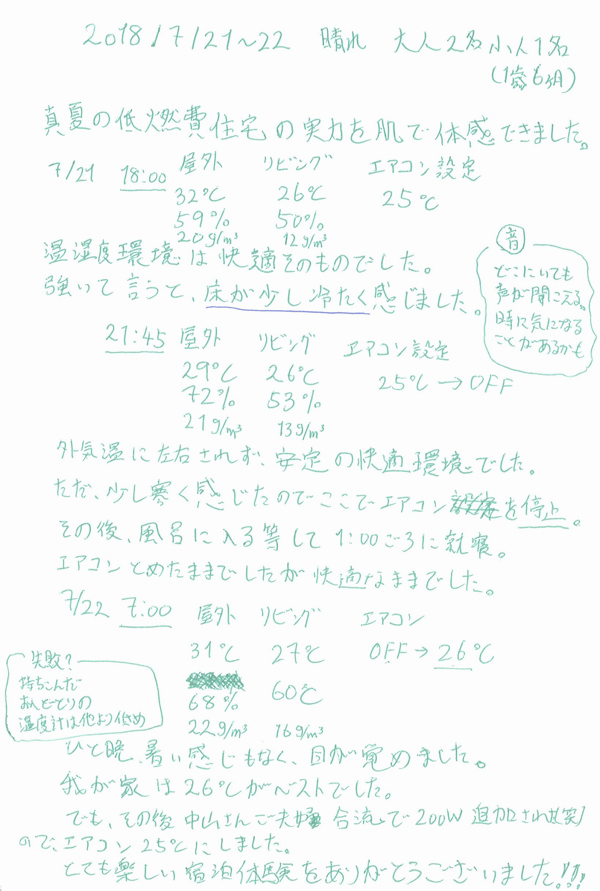 2018/7/21~22 晴れ 大人2名 小人1名
(1歳6ヶ月)
真夏の低燃費住宅の実力を肌で体感できました。
7/21 18:00 屋外 リビング エアコン設定
32℃ 26℃ 25℃
59% 50%
20g/m³ 12g/m³
温湿度環境は快適そのものでした。
強いて言うと、床が少し冷たく感じました。
音
どこにいても
声が聞こえる。
時に気になる
ことがあるかも
21:45 屋外 リビング エアコン設定
29℃ 26℃ 25℃→OFF
72% 53%
21g/m³ 13g/m³
外気温に左右されず、安定の快適環境でした。
ただ、少し寒く感じたのでここでエアコンを停止。
その後、風呂に入る等して1:00ごろに就寝。
エアコンとめたままでしたが快適なままでした。
7/22 7:00 屋外 リビング エアコン
31℃ 27℃ OFF→26℃
68% 60℃
22g/m³ 16g/m³
失敗?
持ちこんだ
おんどとりの
温度計は他より低め
ひと晩、暑い感じもなく、目が覚めました。
我が家は26℃がベストでした。
でも、その後中山さんご夫婦合流で200W追加され(笑)
ので、エアコン25℃にしました。
とても楽しい宿泊体験をありがとうございました!!!